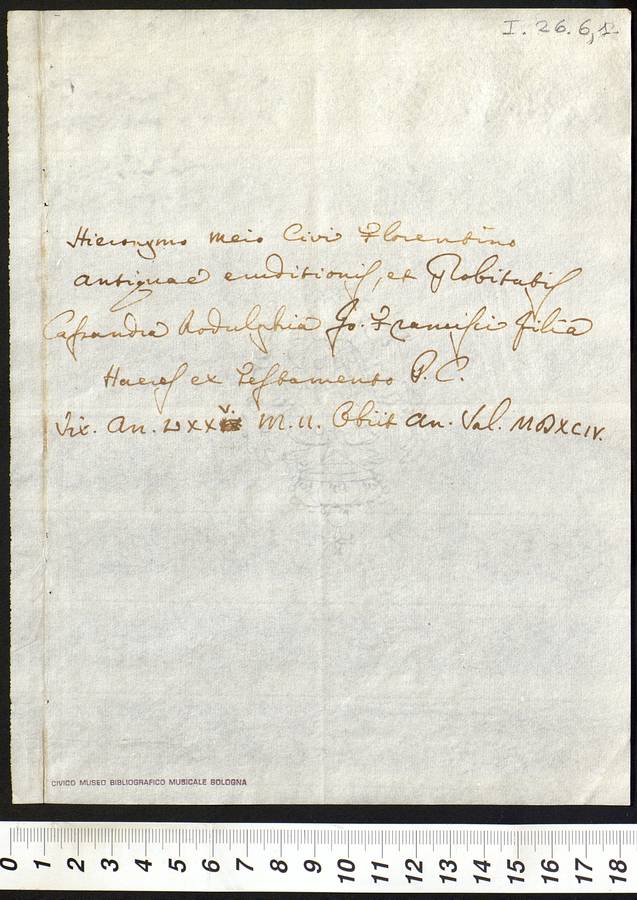 I. 26.6,1.
Hieronymo Meio Civi Florentino
antiquae eruditionis, et Probitatis
Cassandra Rodulphia Jo. Francisci filia
Haeres ex Testamento P. C.
Vix. An. LXXV. M. II. Obiit An. Sal. MDXCIV.
CIVICO MUSEO BIBLIOGRAFICO MUSICALE BOLOGNA
0 1 2 3 4 5 6 7 8 9 10 11 12 13 14 15 16 17 18